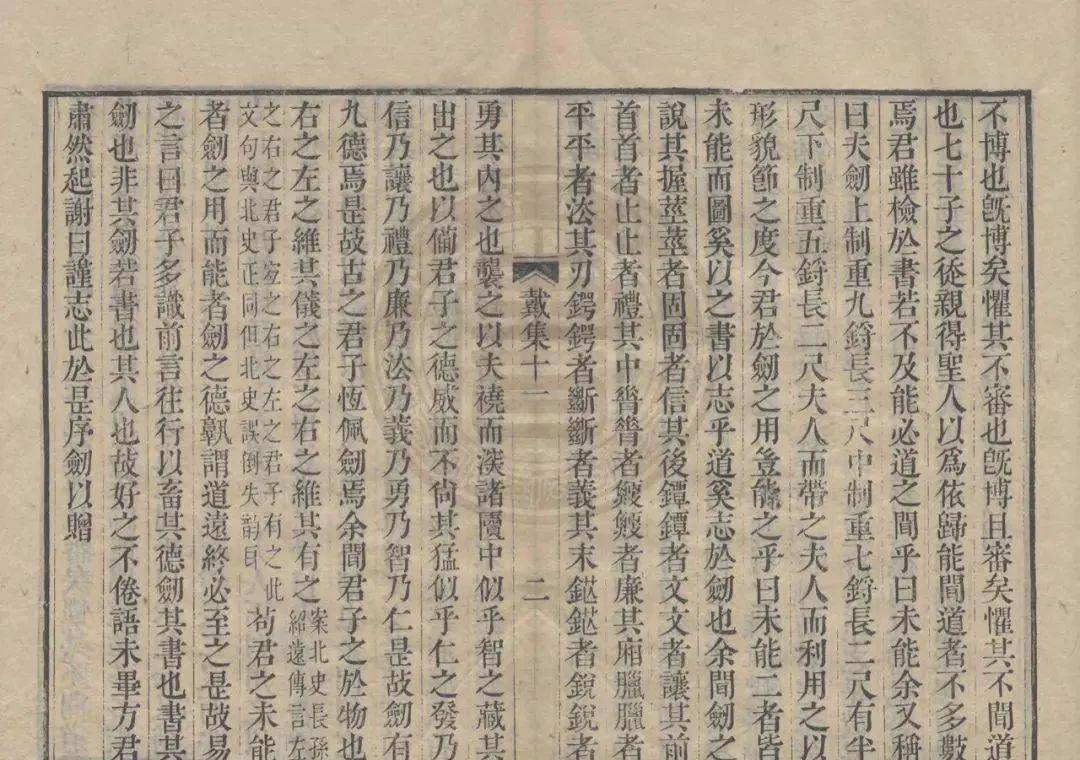 不博也旣博矣懼其不審也旣博且審矣懼其不聞道
也七十子之徒親得聖人以爲依歸能聞道者不多數
焉君雖檢於書若不及能必道之聞乎曰未能余又稱
曰夫劒上制重九鋝長三尺中制重七鋝長二尺有半
尺下制重五鋝長二尺夫人而帶之夫人而利用之以
形貌節之度今君於劒之用豈能之乎曰未能二者皆
未能而圖奚以之書以志乎道奚志於劒也余聞劒之
說其握莖莖者固固者信其後鐔鐔者文文者讓其前
首首者止止者禮其中
者廉其廂臘臘者
平平者㳒其刃鍔鍔者斷斷者義其末鎹鎹者銳銳者
戴集十一
二
勇其內之也襲之以夫襓而深諸匵中似乎智之藏其
出之也以備君子之德威而不尙其猛似乎仁之發乃
信乃讓乃禮乃廉乃㳒乃義乃勇乃智乃仁是故劒有
九德焉是故古之君子恆佩劒焉余聞君子之於物也
右之左之維其儀之左之右之維其有之
案北史長孫
紹遠傳言左
之右之君子宐之右之左之君子有之此
文句與北史正同但北史誤倒失韵耳
苟君之未能
者劒之用而能者劒之德孰謂道遠終必至之是故易
之言曰君子多識前言往行以畜其德劒其書也書其
劒也非其劒若書也其人也故好之不倦語未畢方君
肅然起謝曰謹志此於是序劒以贈